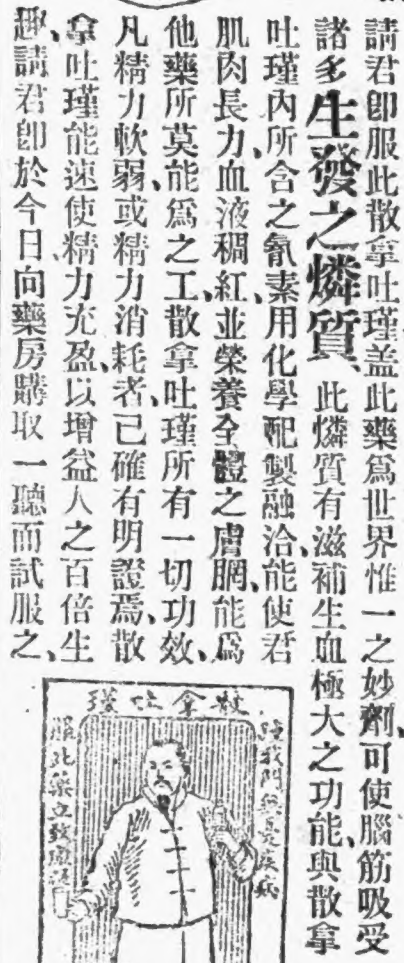 請君卽服此散拿吐瑾盖此藥爲世界惟一之妙劑、可使腦筋吸受
諸多生發之燐質、此燐質有滋補生血極大之功能、與散拿
吐瑾內所含之氮素用化學配製融洽、能使君
肌肉長力、血液稠紅、並榮養全體之膚膶、能爲
他藥所莫能爲之工、散拿吐瑾所有一切功效、
凡精力軟弱、或精力消耗者、已確有明證焉、散
拿吐瑾能速使精力充盈、以增益人之百倍生
趣、請君卽於今日、向藥房購取一聽而試服之、
散拿吐瑾
服此藥立致